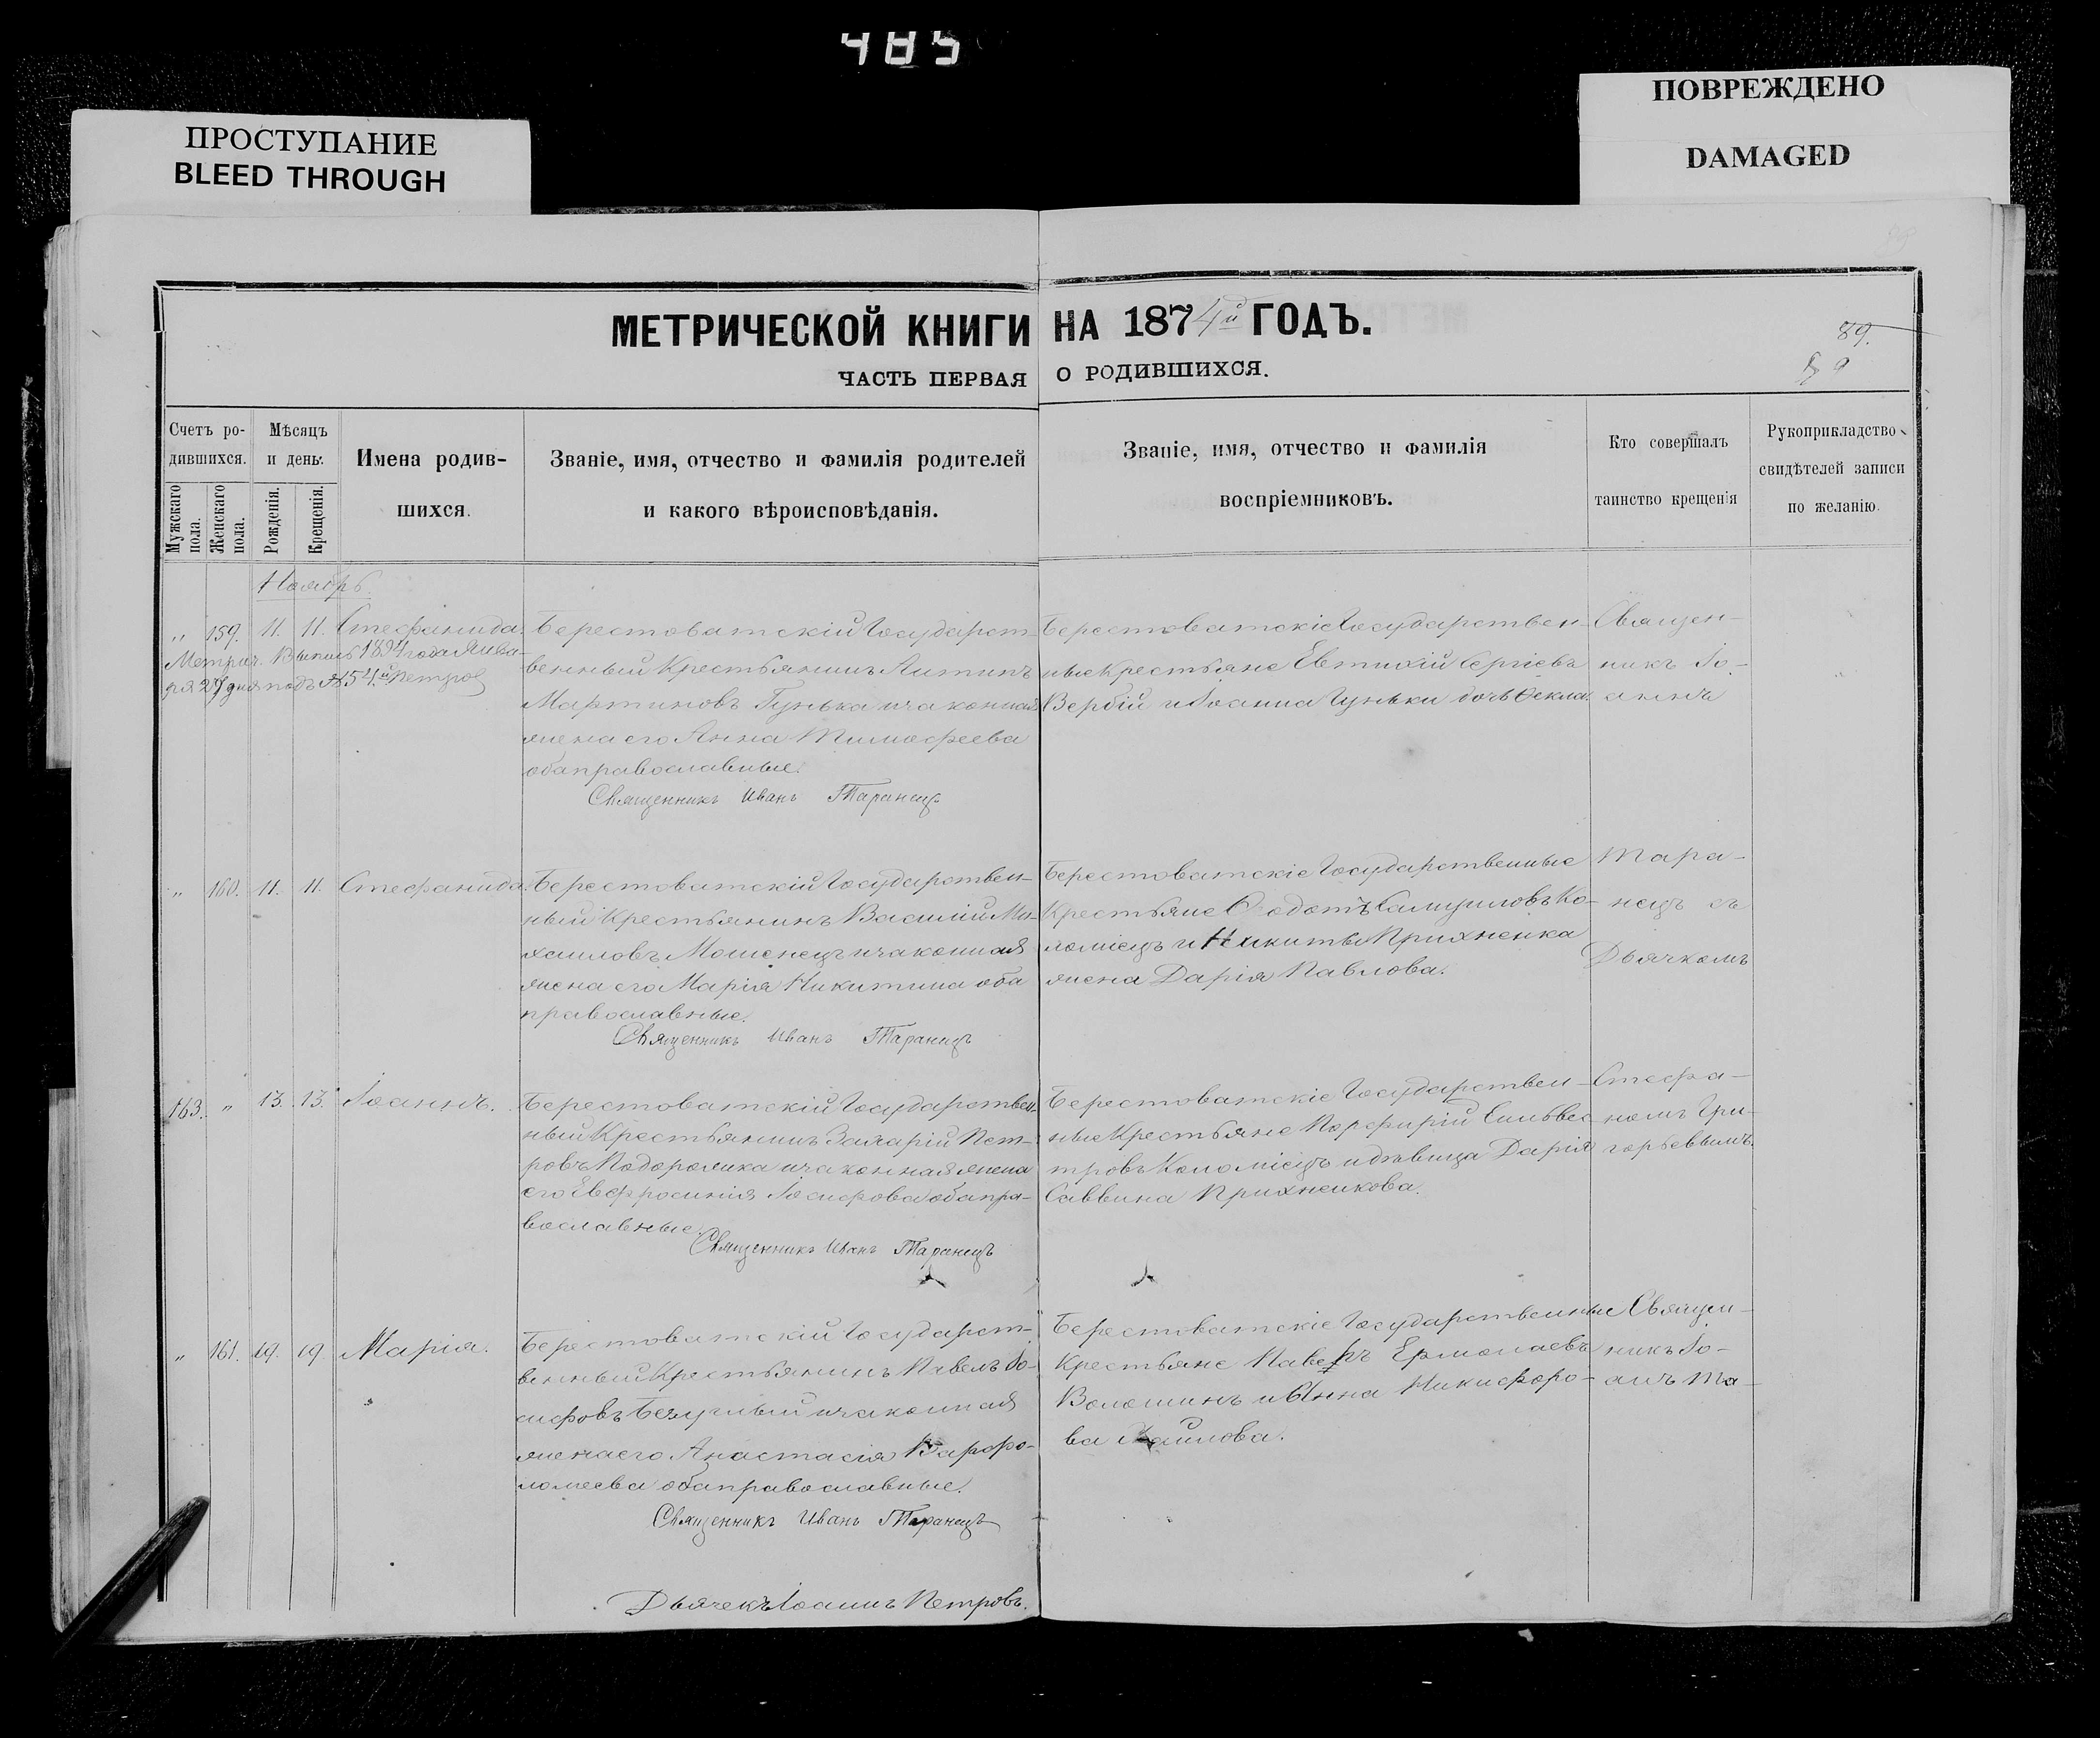 485
ПРОСТУПАНИЕ
BLEED THROUGH
ПОВРЕЖДЕНО
DAMAGED
МЕТРИЧЕСКОЙ КНИГИ НА 1874й ГОДЪ.
ЧАСТЬ ПЕРВАЯ О РОДИВШИХСЯ.
89.
Счетъ ро-
дившихся.
Мужскаго
пола.
Женскаго
пола.
Мѣсяцъ
и день.
Рожденія.
Крещенія.
Имена родив-
шихся.
Званіе, имя, отчество и фамилія родителей
и какого вѣроисповѣданія.
Званіе, имя, отчество и фамилія
воспріемниковъ.
Кто совершалъ
таинство крещенія
Рукоприкладство
свидѣтелей записи
по желанію.
Ноябрь
„ 159. 11. 11. Стефанида.
Метрич. Выпись 1894 года Янва-
ря 29 дня подъ №54.
Берестоватскій Государст-
венный Крестьянинъ Антипъ
Мартиновъ Гунька и законная
жена его Анна Тимофеева
оба православные.
Священникъ Иванъ Таранецъ
Берестоватскіе Государствен-
ные Крестьяне Евтихій Сергіевъ
Вербій и Іоанна Гуньки дочь Ѳекла.
Священ-
никъ Іо-
аннъ
„ 160. 11. 11. Стефанида.
Берестоватскій Государствен-
ный Крестьянинъ Василій Ми-
хаиловъ Мошенецъ и законная
жена его Марія Никитина оба
православные.
Священникъ Иванъ Таранецъ
Берестоватскіе Государственные
Крестьяне Ѳеодотъ Самуиловъ Ко-
ломіецъ и Никиты Прихненка
жена Дарія Павлова.
Тара-
нецъ съ
Дьячкомъ
163. „ 13. 13. Іоаннъ.
Берестоватскій Государствен-
ный Крестьянинъ Захарій Пет-
ровъ Подорожка и законная жена
его Евфросинія Іосифова оба пра-
вославные.
Священникъ Иванъ Таранецъ
Берестоватскіе Государствен-
ные Крестьяне Порфирій Сильвес-
тровъ Коломіецъ и дѣвица Дарія
Саввина Прихненкова.
Стефа-
номъ Гри-
горьевымъ.
„ 161. 19. 19 Марія.
Берестоватскій Государст-
венный Крестьянинъ Павелъ Іо-
сифовъ Безуглый и законная
жена его Анастасія Варфо-
ломеева оба православные.
Священникъ Иванъ Таранецъ
Берестоватскіе Государственные
Крестьяне Ермолаевъ
Волошинъ и Анна Никифоро-
ва
Священ-
никъ Іо-
анъ Та-
Дьячекъ Іоаннъ Петровъ.